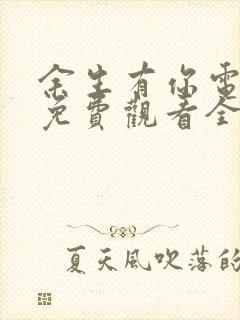 余生有你電
免費觀看全
夏天風吹落的